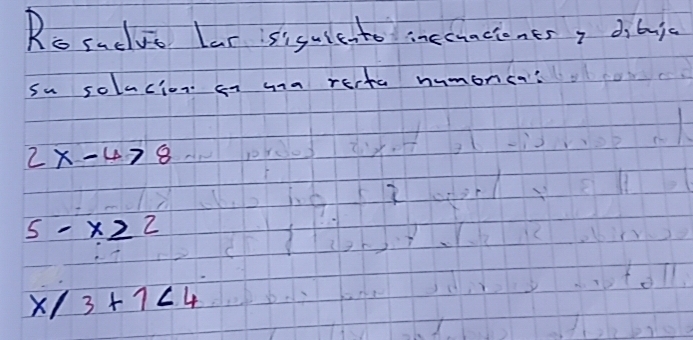 Resuelve las siguiente inecuaciones y dibuja
su solucion en una recta numerica:
2x - 4 > 8
5 - x ≥ 2
x/3 + 1 < 4